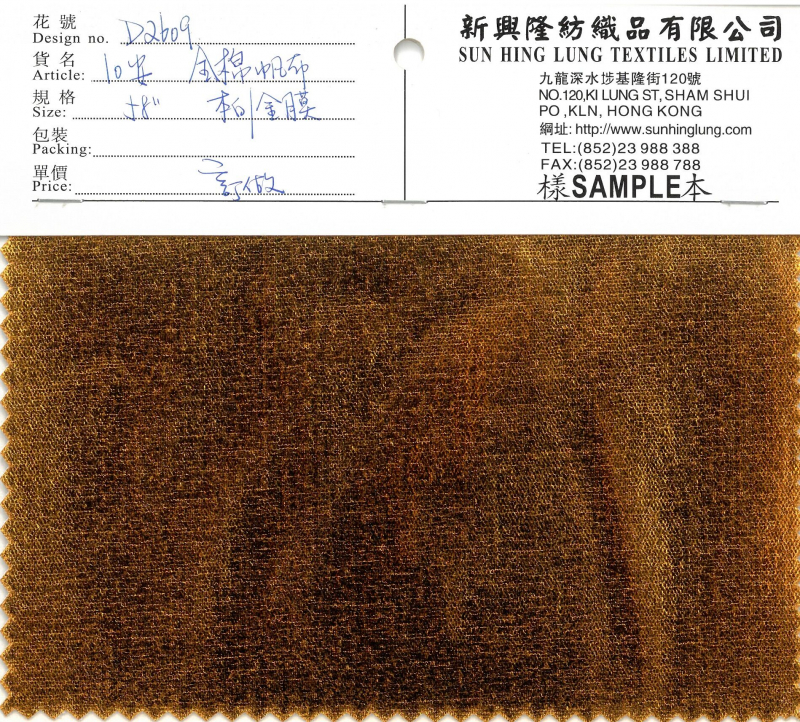 花 號
Design no. D2609
貨 名
Article: 10安 全棉帆布
規 格
Size: 58" 柏金膜
包裝
Packing:
單價
Price: 訂做
新興隆紡織品有限公司
SUN HING LUNG TEXTILES LIMITED
九龍深水埗基隆街120號
NO.120,KI LUNG ST, SHAM SHUI
PO ,KLN, HONG KONG
網址: http://www.sunhinglung.com
TEL:(852)23 988 388
FAX:(852)23 988 788
樣SAMPLE本